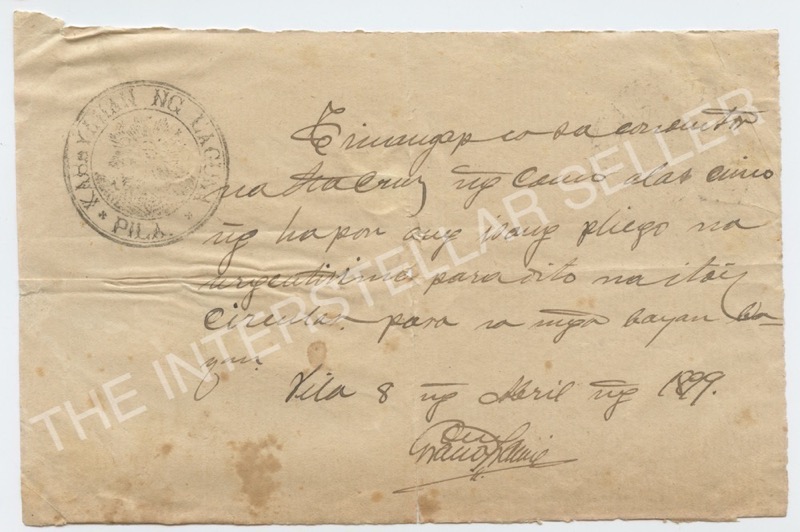 KABAYANAN NG LAGUNA
* PILA. *
Tinangap co sa conductor
na Sta Cruz ng
ng hapon ang isang pliego na
urgentisima para dito na itoi,
circular para sa mga bayan ba-
yan.
Pila 8 ng Abril ng 1899.
THE INTERSTELLAR SELLER